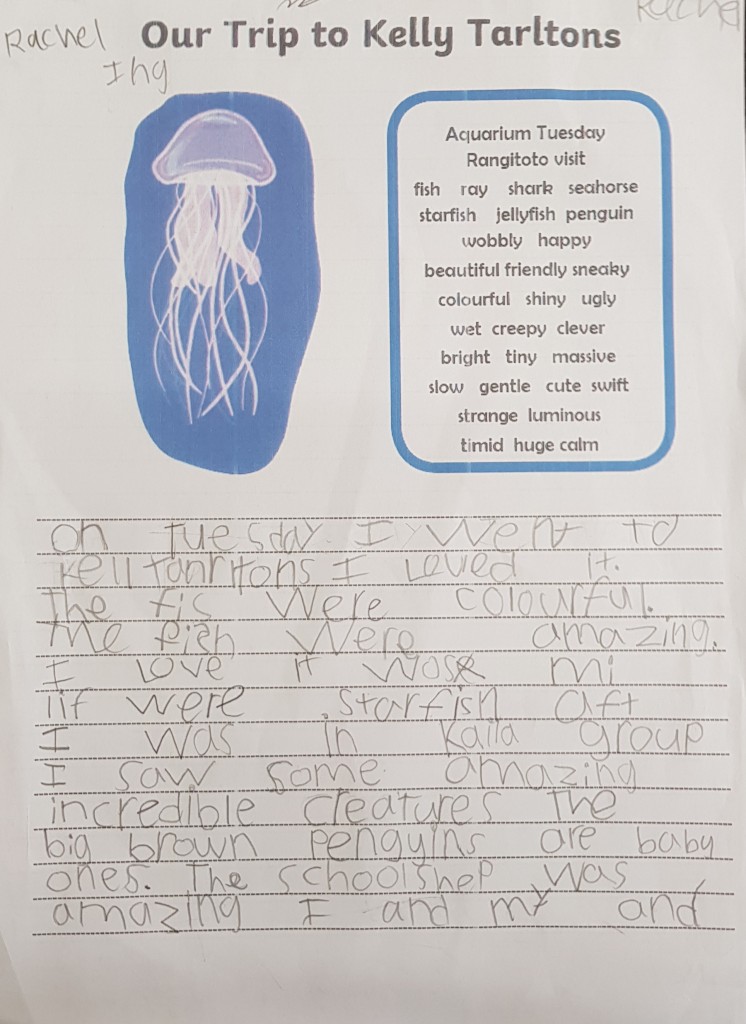 Rachel
Our Trip to Kelly Tarltons
Ihg
Aquarium Tuesday
Rangitoto visit
fish ray shark seahorse
starfish jellyfish penguin
wobbly happy
beautiful friendly sneaky
colourful shiny ugly
wet creepy clever
bright tiny massive
slow gentle cute swift
strange luminous
timid huge calm
on tuesday. I went to
kell tanritons I Loved it.
the fis were colourful.
The fish were amazing.
I Love it wose mi
lif were .starfish aft
I was in Kaila group
I saw some amazing
incredible creatures the
big brown penguins are baby
ones. The schoolshep was
amazing I and my and